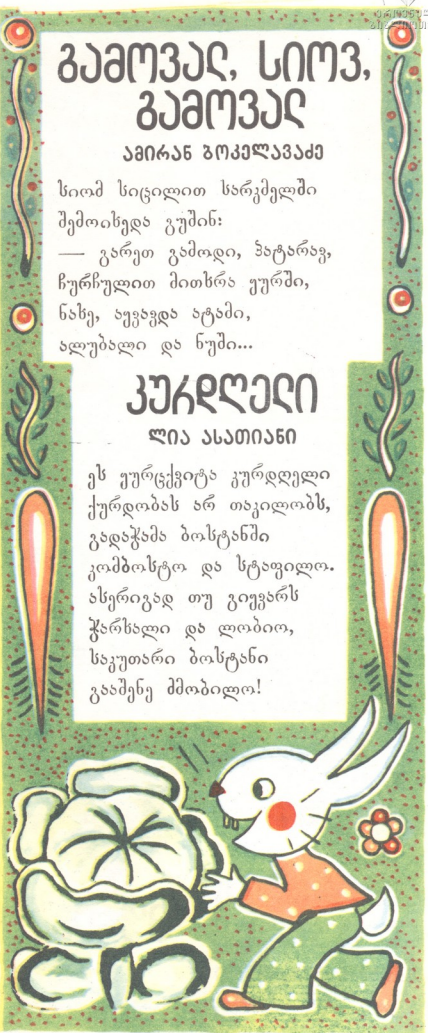 გამოვალ, სიოვ,
გამოვალ
ამირან ბოკელავაძე
სიომ სიცილით სარკმელში
შემოიხედა გუშინ:
— გარეთ გამოდი, პატარავ,
ჩურჩულით მითხრა ყურში,
ნახე, აყვავდა ატამი,
ალუბალი და ნუში...
კურდღელი
ლია ასათიანი
ეს ყურცქვიტა კურდღელი
ქურდობას არ თაკილობს,
გადაჭამა ბოსტანში
კომბოსტო და სტაფილო.
ასერიგად თუ გიყვარს
ჭარხალი და ლობიო,
საკუთარი ბოსტანი
გააშენე ძმობილო!